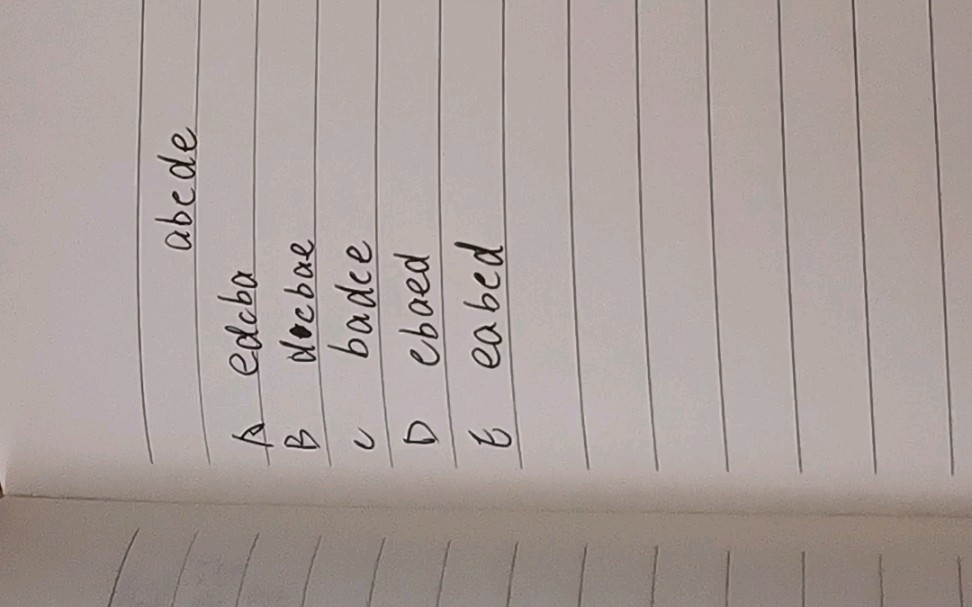 abcde
A edcba
B dcbae
C badce
D cbaed
E eabcd